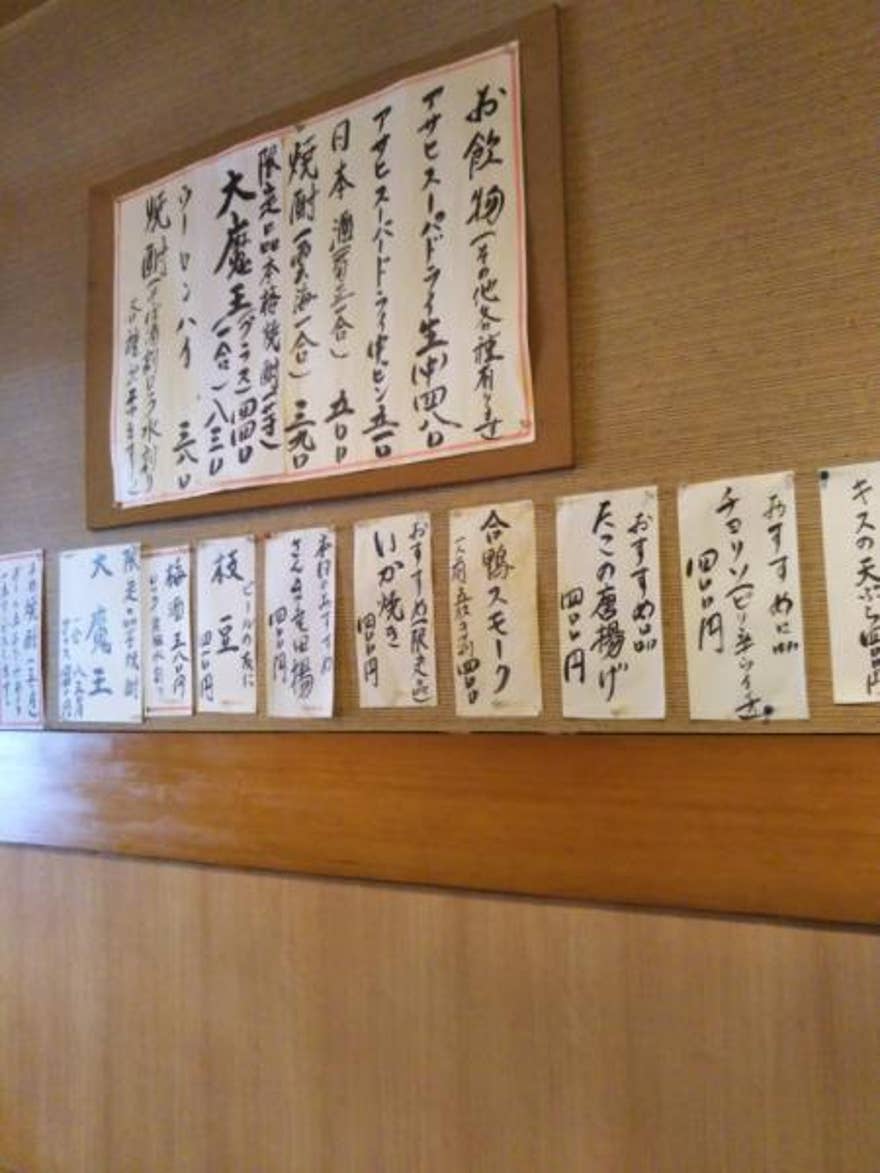 お飲物（その他各種有ります）
アサヒスーパードライ生（中）四八〇
アサヒスーパードライ中ビン 五一〇
日本酒（一合） 五〇〇
焼酎（雲海一合） 三九〇
限定品本格焼酎
大魔王（グラス）四四〇
（一合）八三〇
ウーロンハイ 三八〇
焼酎 水割り
各種出来ます
キスの天ぷら 四〇〇円
おすすめ品
チョリソ（ピリ辛ウインナー）
四〇〇円
おすすめ品
たこの唐揚げ
四〇〇円
合鴨スモーク
四〇〇
おすすめ（限定品）
いか焼き
四〇〇円
本日のおすすめ
さんまの竜田揚
四〇〇円
ビールの友に
枝豆
四一〇円
梅酒 五八〇円
限定品芋焼酎
大魔王
一合